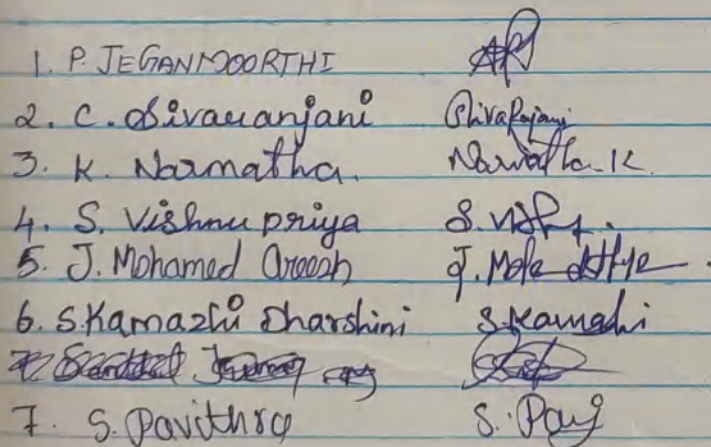 1. P. JEGANMOORTHI
2. C. Sivaranjani Shivaranjani
3. K. Narmatha. Narmatha. K
4. S. Vishnu priya S.
5. J. Mohamed Areesh J.
6. S. Kamazhi Dharshini S. Kamazhi
7. S. Pavithra S.